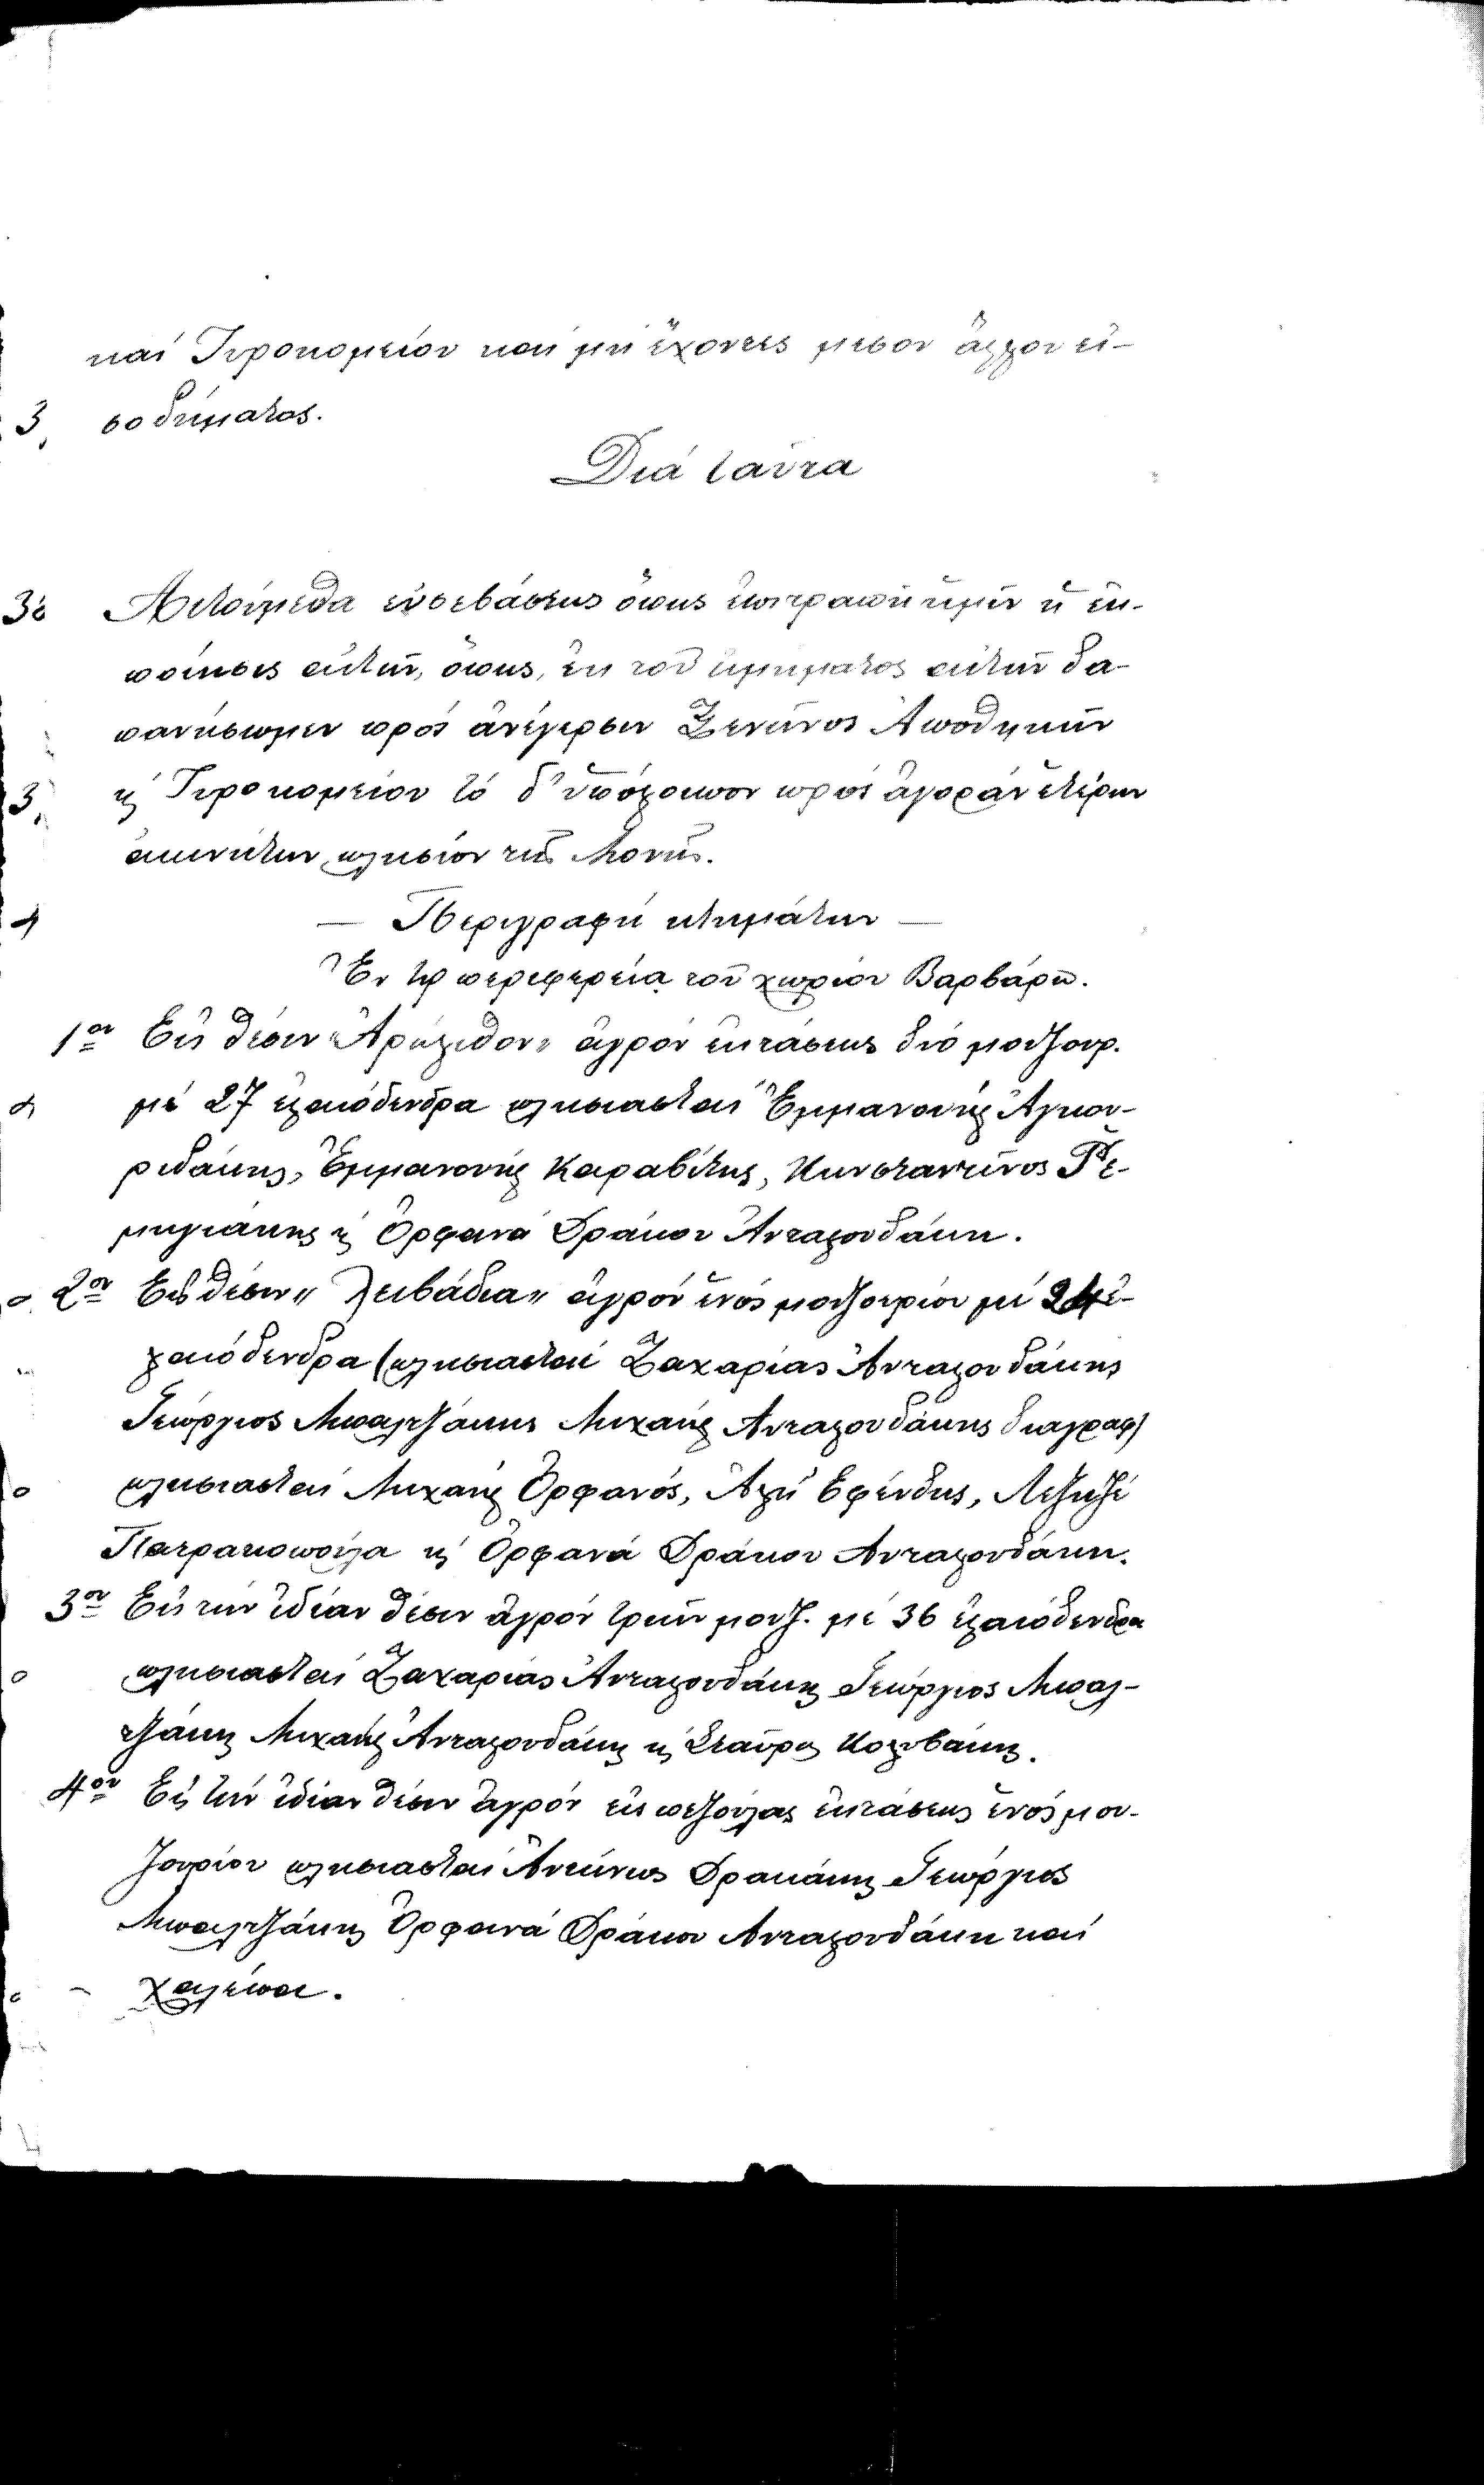 καί Γηροκομείου καί μή ἔχοντες μέσον ἄλλον εἰ-
σοδήματος.
Διά ταῦτα
Αἰτούμεθα εὐσεβάστως ὅπως ἐπιτραπῆ ἡμῖν ἡ ἐκ-
ποίησις αὐτῶν, ὅπως, ἐκ τοῦ τιμήματος αὐτῶν δα-
πανήσωμεν πρός ἀνέγερσιν Ξενῶνος Ἀποθηκῶν
κ Γηροκομείου τό δ' ὑπόλοιπον πρός ἀγοράν ἑτέρων
ἀκινήτων πλησίον τῆς Μονῆς.
— Περιγραφή κτημάτων —
Ἐν τῇ περιφερείᾳ τοῦ χωρίου Βαρβάρω.
1ον Εἰς θέσιν "Ἀρκόλιθον" ἀγρόν ἐκτάσεως δύο μουζουρ.
μέ 27 ἐλαιόδενδρα πλησιασταί Ἐμμανουήλ Ἀγιου-
ριδάκης, Ἐμμανουήλ Καραβίτης, Κωνσταντῖνος
κ Ὀρφανά Δράκου Ἀνταλουδάκη.
2ον Εἰς θέσιν " Λειβάδια " ἀγρόν ἑνός μουζουρίου μέ 24 ἐ-
λαιόδενδρα (πλησιασταί Ζαχαρίας Ἀνταλουδάκης
Γεώργιος Μπαλτζάκης Μιχαήλ Ἀνταλουδάκης διαγραφ)
πλησιασταί Μιχαήλ Ὀρφανός, Ἀλή Ἐφένδης,
Πατρακοπούλα κ Ὀρφανά Δράκου Ἀνταλουδάκη.
3ον Εἰς τήν ἰδίαν θέσιν ἀγρόν τριῶν μουζ. μέ 36 ἐλαιόδενδρα
πλησιασταί Ζαχαρίας Ἀνταλουδάκης Γεώργιος Μπαλ-
τζάκης Μιχαήλ Ἀνταλουδάκης κ Σταῦρος Κολυβάκης.
4ον Εἰς τήν ἰδίαν θέσιν ἀγρόν εἰς πεζούλας ἐκτάσεως ἑνός μου-
ζουρίου πλησιασταί Ἀντώνιος Δρακάκης Γεώργιος
Μπαλτζάκης Ὀρφανά Δράκου Ἀνταλουδάκη καί
χαλέπα.